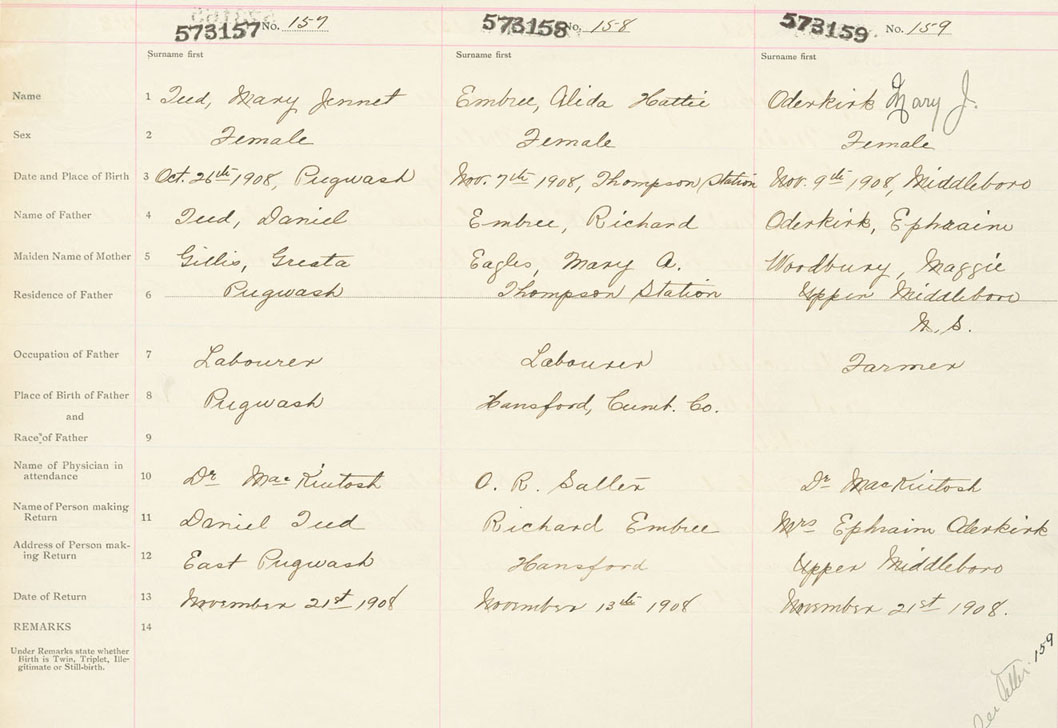 573157 No. 157
573158 No. 158
573159 No. 159
Surname first
Surname first
Surname first
Name 1 Teed, Mary Jennet Embree, Alida Hattie Oderkirk Mary J.
Sex 2 Female Female Female
Date and Place of Birth 3 Oct. 26th 1908, Pugwash Nov. 7th 1908, Thompson Station Nov. 9th 1908, Middleboro
Name of Father 4 Teed, Daniel Embree, Richard Oderkirk, Ephraim
Maiden Name of Mother 5 Gillis, Greata Eagles, Mary A. Woodbury, Maggie
Residence of Father 6 Pugwash Thompson Station Upper Middleboro
N. S.
Occupation of Father 7 Labourer Labourer Farmer
Place of Birth of Father 8 Pugwash Hansford, Cumb. Co.
and
Race of Father 9
Name of Physician in
attendance 10 Dr MacKintosh O. R. Salter Dr MacKintosh
Name of Person making
Return 11 Daniel Teed Richard Embree Mrs Ephraim Oderkirk
Address of Person mak-
ing Return 12 East Pugwash Hansford Upper Middleboro
Date of Return 13 November 21st 1908 November 13th 1908 November 21st 1908.
REMARKS 14
Under Remarks state whether
Birth is Twin, Triplet, Ille-
gitimate or Still-birth.
159